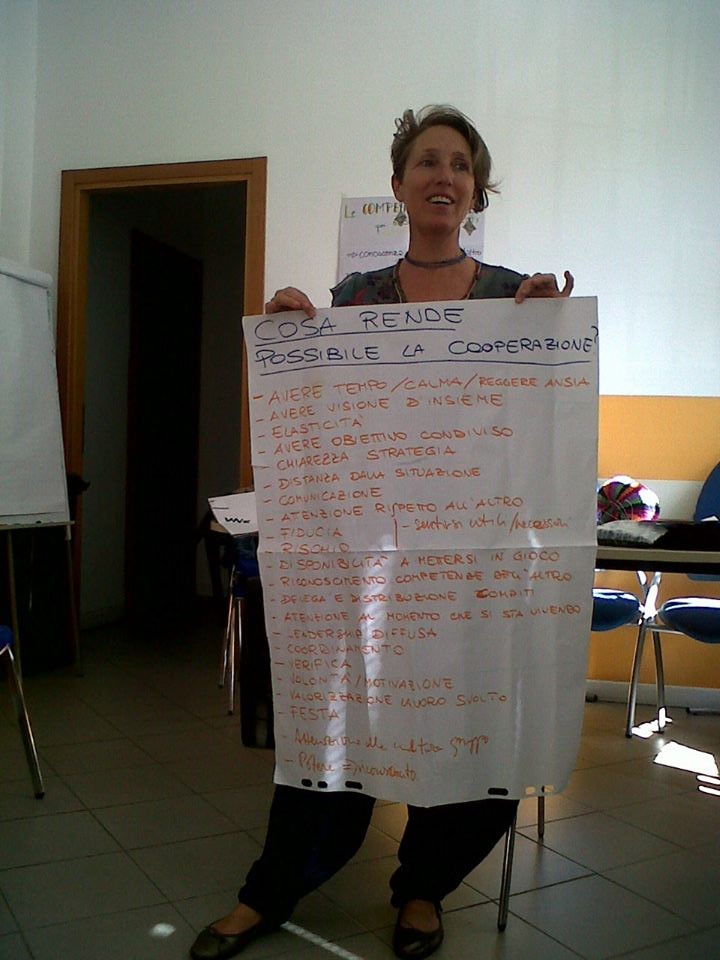 Le COMPE
COSA RENDE
POSSIBILE LA COOPERAZIONE?
- AVERE TEMPO/CALMA/REGGERE ANSIA
- AVERE VISIONE D'INSIEME
- ELASTICITÀ
- AVERE OBIETTIVO CONDIVISO
- CHIAREZZA STRATEGIA
- DISTANZA DALLA SITUAZIONE
- COMUNICAZIONE
- ATTENZIONE RISPETTO ALL'ALTRO
- FIDUCIA
- sentirsi utili/necessari
- RISCHIO
- DISPONIBILITÀ A METTERSI IN GIOCO
- RICONOSCIMENTO COMPETENZE DELL'ALTRO
- DELEGA E DISTRIBUZIONE COMPITI
- ATTENZIONE AL MOMENTO CHE SI STA VIVENDO
- LEADERSHIP DIFFUSA
- COORDINAMENTO
- VERIFICA
- VOLONTÀ/MOTIVAZIONE
- VALORIZZAZIONE LAVORO SVOLTO
- FESTA
- Attenzione alla cultura gruppo
- Potere